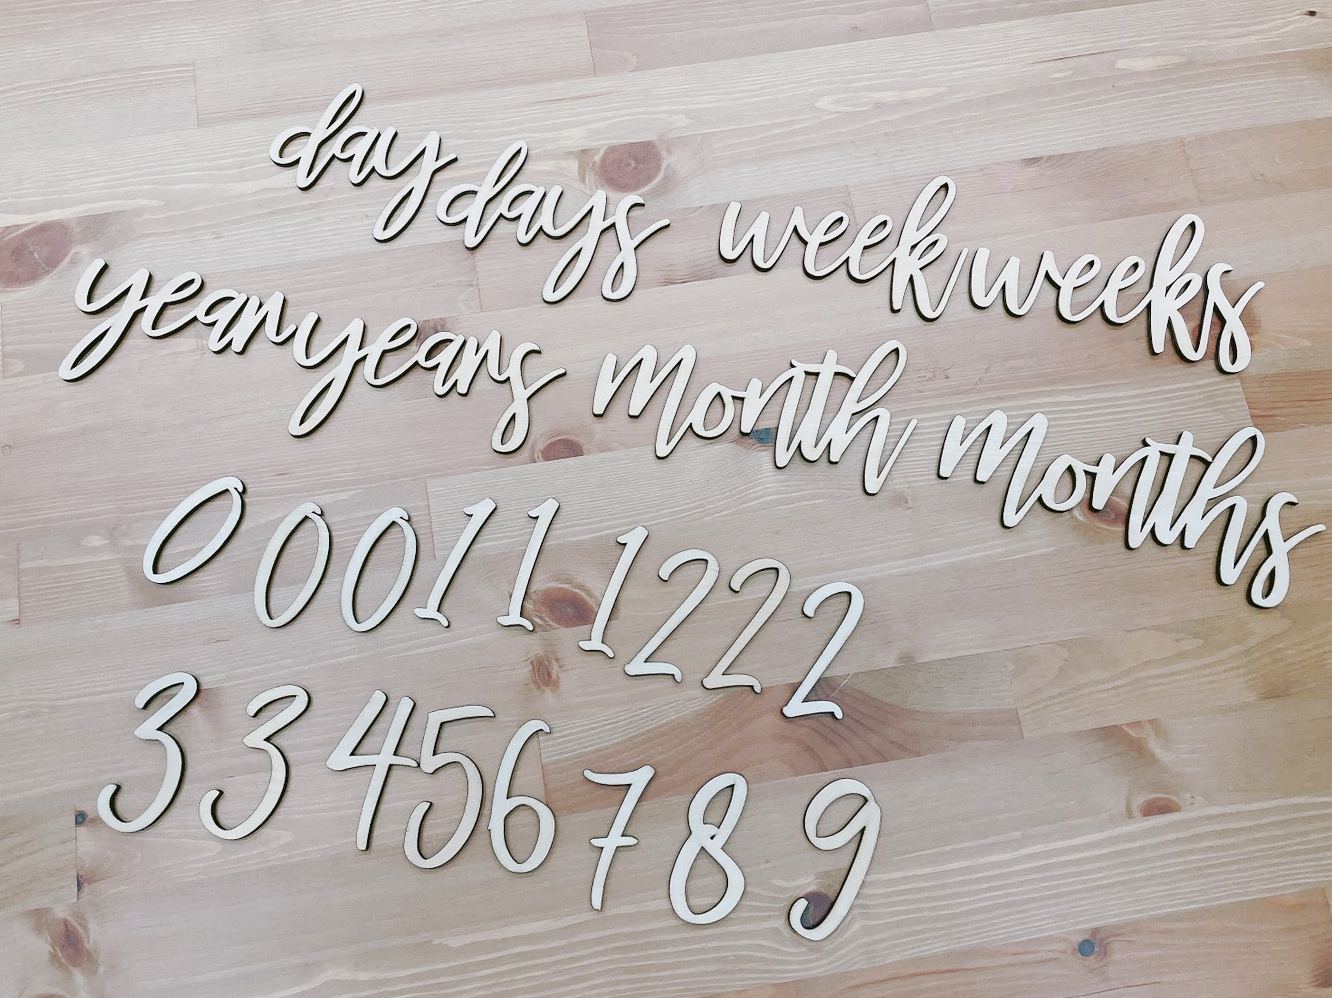 day days week weeks
year years month months
0 0 0 1 1 1 2 2 2
3 3 4 5 6 7 8 9